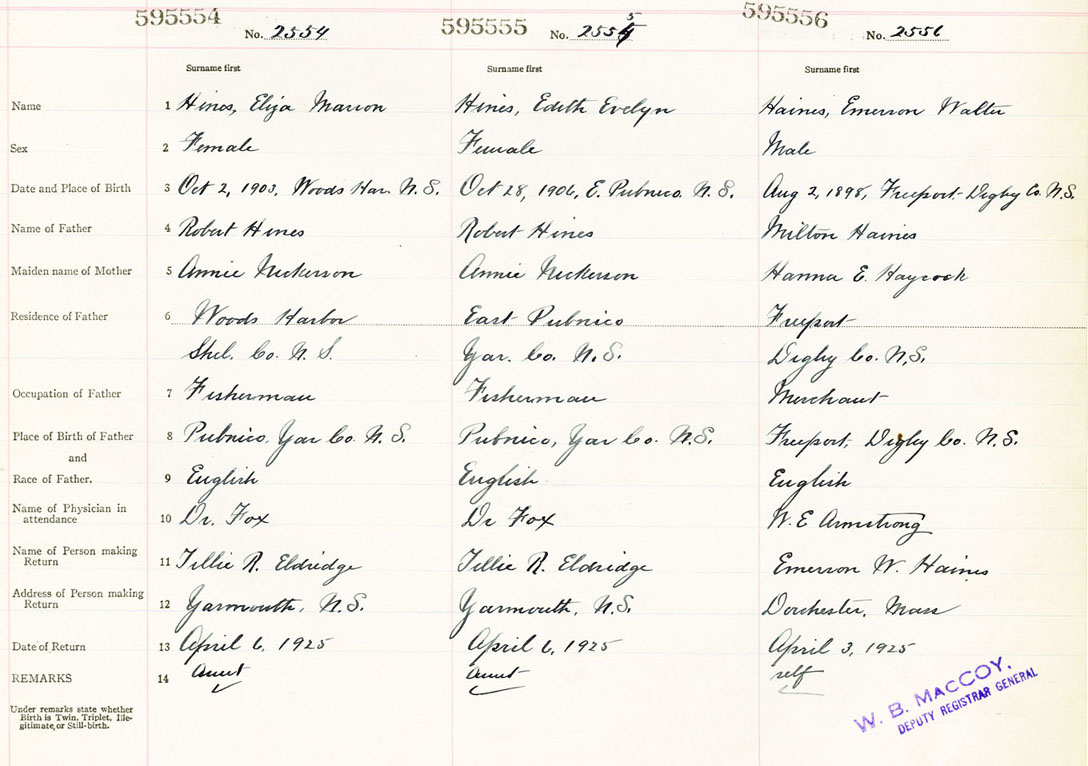 595554 595555 595556
No. 2554 No. 2555 No. 2556
Surname first Surname first Surname first
Name 1 Hines, Eliza Marion Hines, Edith Evelyn Haines, Emerson Walter
Sex 2 Female Female Male
Date and Place of Birth 3 Oct 2, 1903, Woods Har. N.S. Oct 28, 1906, E. Pubnico. N.S. Aug 2, 1898, Freeport Digby Co. N.S.
Name of Father 4 Robert Hines Robert Hines Milton Haines
Maiden name of Mother 5 Annie Nickerson Annie Nickerson Hanna E. Haycock
Residence of Father 6 Woods Harbor East Pubnico Freeport
Shel. Co. N.S. Yar. Co. N.S. Digby Co. N.S.
Occupation of Father 7 Fisherman Fisherman Merchant
Place of Birth of Father 8 Pubnico, Yar Co. N.S. Pubnico, Yar Co. N.S. Freeport, Digby Co. N.S.
and
Race of Father. 9 English English English
Name of Physician in
attendance 10 Dr. Fox Dr Fox W. E Armstrong
Name of Person making
Return 11 Tillie R. Eldridge Tillie R. Eldridge Emerson W. Haines
Address of Person making
Return 12 Yarmouth, N.S. Yarmouth, N.S. Dorchester, Mass
Date of Return 13 April 6, 1925 April 6, 1925 April 3, 1925
REMARKS 14 aunt aunt self
Under remarks state whether
Birth is Twin, Triplet, Ille-
gitimate, or Still-birth.
W. B. MACCOY,
DEPUTY REGISTRAR GENERAL